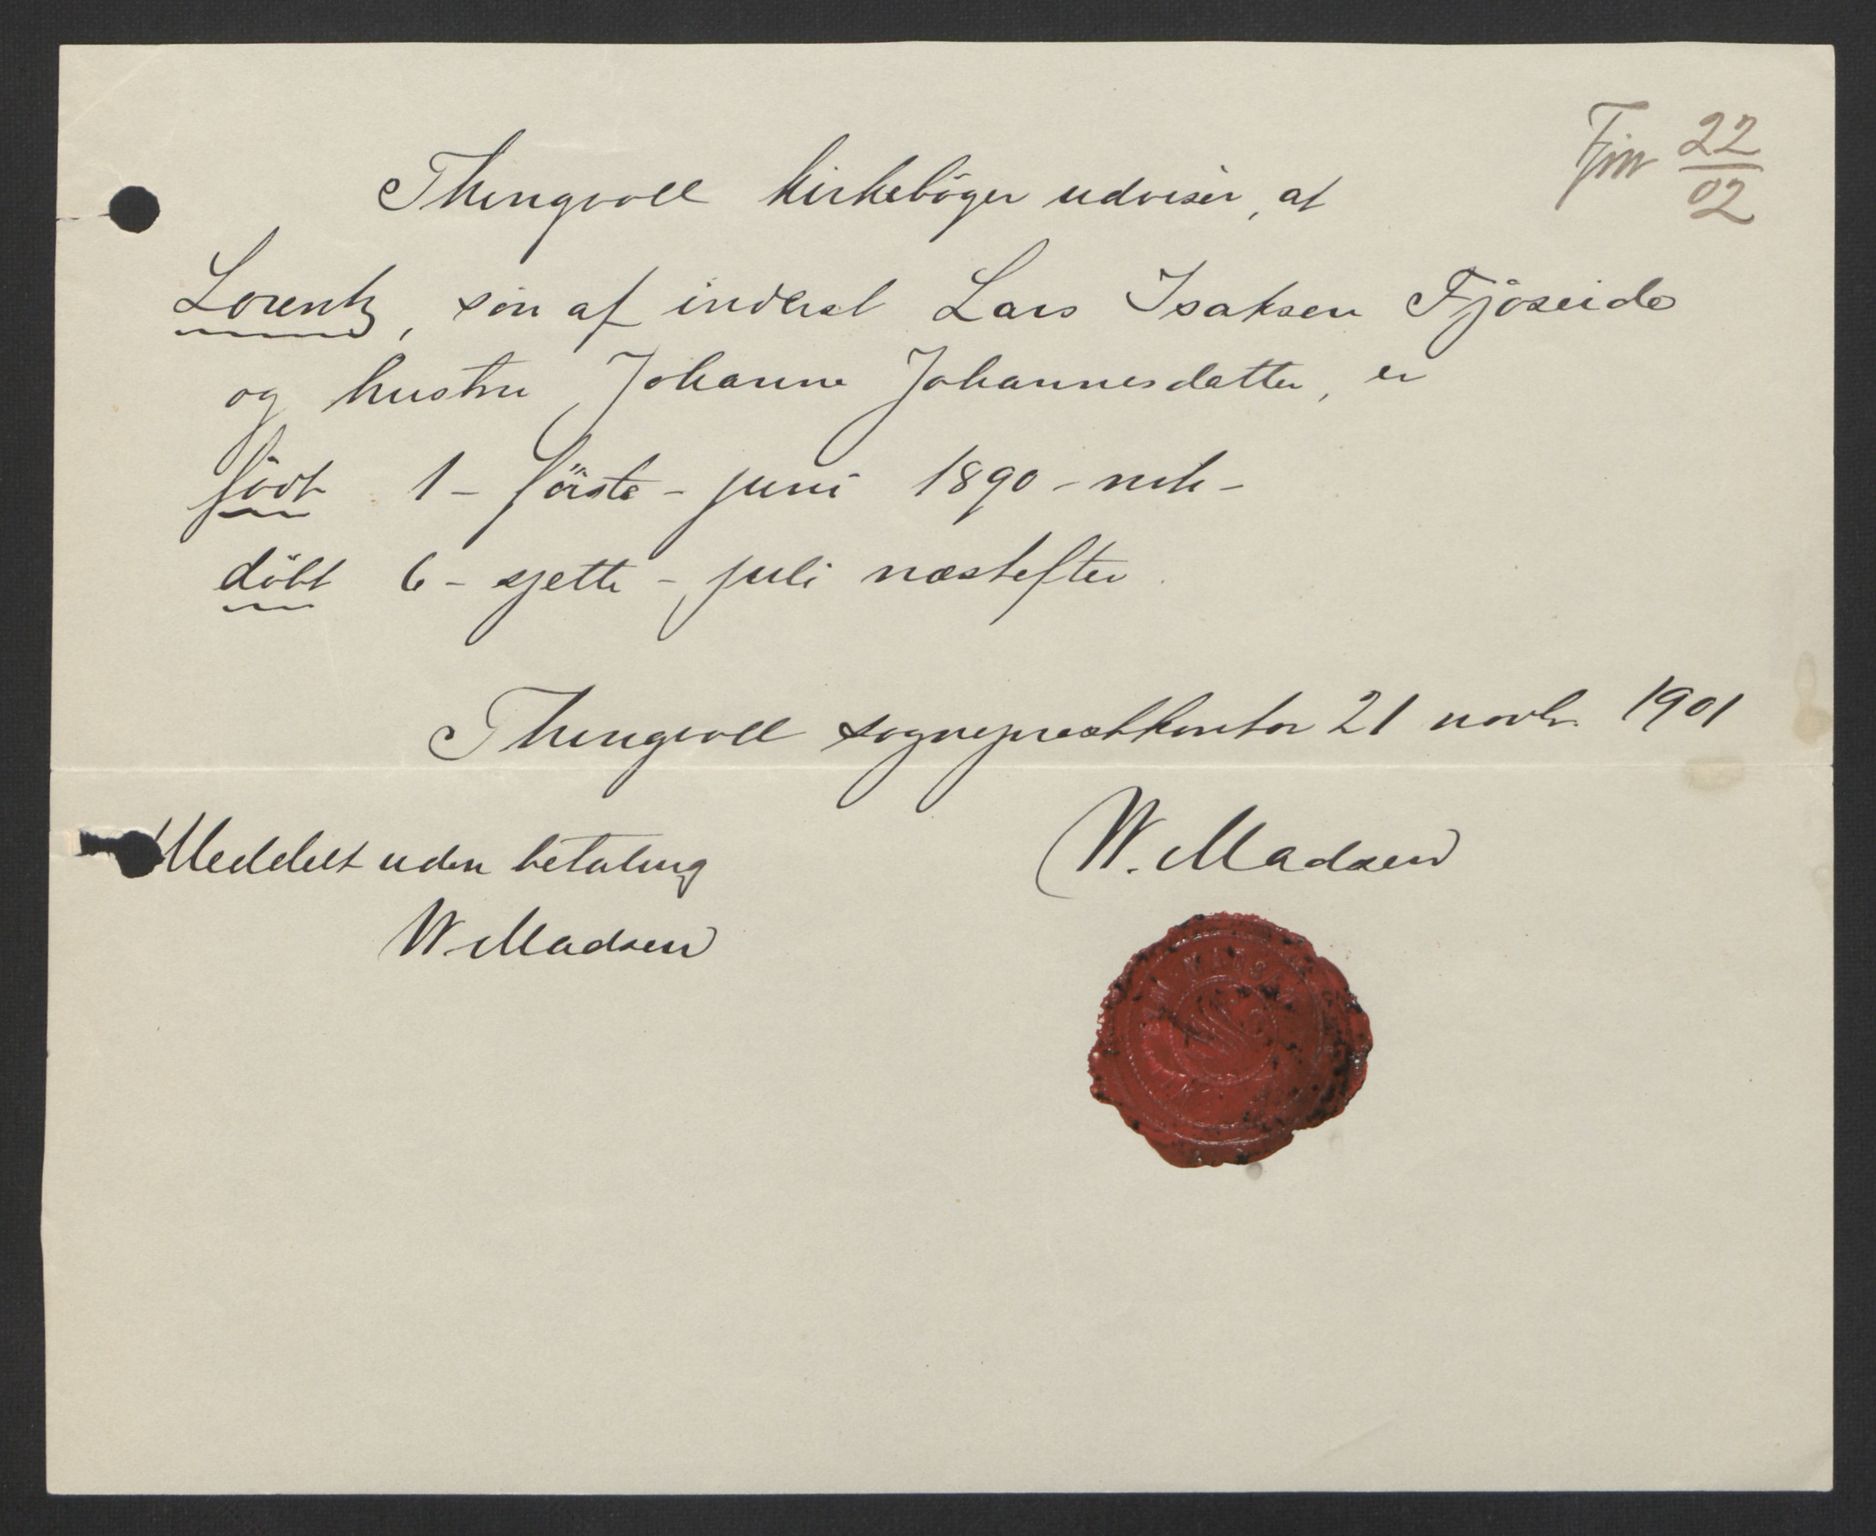 Fjm 22/02
Thingvoll kirkebøger udviser, at
Lorentz, søn af inderst Lars Isaksen Fjøseide
og hustru Johanne Johannesdatter, er
født 1 - første - juni 1890 - nik -
døbt 6 - sjette - juli næstefter.
Thingvoll sogneprestkontor 21 novbr. 1901
W. Madsen
Meddelt uden betaling
W. Madsen